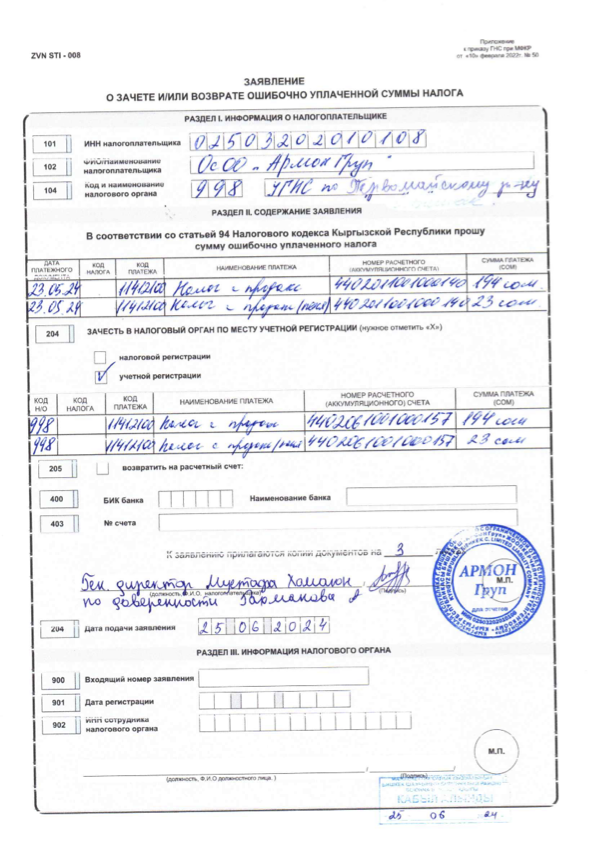 Приложение
к приказу ГНС при МФКР
от «10» февраля 2022г. № 50
ZVN STI - 008
ЗАЯВЛЕНИЕ
О ЗАЧЕТЕ И/ИЛИ ВОЗВРАТЕ ОШИБОЧНО УПЛАЧЕННОЙ СУММЫ НАЛОГА
РАЗДЕЛ I. ИНФОРМАЦИЯ О НАЛОГОПЛАТЕЛЬЩИКЕ
101 ИНН налогоплательщика 02503202010108
102 ФИО/Наименование налогоплательщика ОсОО „Армон Груп"
104 Код и наименование налогового органа 998 УГНС по Первомайскому р-ну
РАЗДЕЛ II. СОДЕРЖАНИЕ ЗАЯВЛЕНИЯ
В соответствии со статьей 94 Налогового кодекса Кыргызской Республики прошу
сумму ошибочно уплаченного налога
ДАТА ПЛАТЕЖНОГО ДОКУМЕНТА КОД НАЛОГА КОД ПЛАТЕЖА НАИМЕНОВАНИЕ ПЛАТЕЖА НОМЕР РАСЧЕТНОГО (АККУМУЛЯЦИОННОГО) СЧЕТА СУММА ПЛАТЕЖА (СОМ)
23.05.24 11412100 Налог с продаж 4402011001000140 194 сом
23.05.24 11412100 Налог с продаж (пеня) 4402011001000140 23 сом
204 ЗАЧЕСТЬ В НАЛОГОВЫЙ ОРГАН ПО МЕСТУ УЧЕТНОЙ РЕГИСТРАЦИИ (нужное отметить «Х»)
налоговой регистрации
V учетной регистрации
КОД Н/О КОД НАЛОГА КОД ПЛАТЕЖА НАИМЕНОВАНИЕ ПЛАТЕЖА НОМЕР РАСЧЕТНОГО (АККУМУЛЯЦИОННОГО) СЧЕТА СУММА ПЛАТЕЖА (СОМ)
998 11412100 Налог с продаж 4402061001000157 194 сом
998 11412100 Налог с продаж (пеня) 4402061001000157 23 сом
205 возвратить на расчетный счет:
400 БИК банка Наименование банка
403 № счета
К заявлению прилагаются копии документов на 3
Ген. директор Мустафа
(должность, Ф.И.О. налогоплательщика) (Подпись)
по доверенности Рахманова А
АРМОН
Груп
М.П.
204 Дата подачи заявления 25 06 2024
РАЗДЕЛ III. ИНФОРМАЦИЯ НАЛОГОВОГО ОРГАНА
900 Входящий номер заявления
901 Дата регистрации
902 ИНН сотрудника налогового органа
М.П.
(должность, Ф.И.О должностного лица. ) (Подпись)
КАБЫЛ АЛЫНДЫ
25 06 24